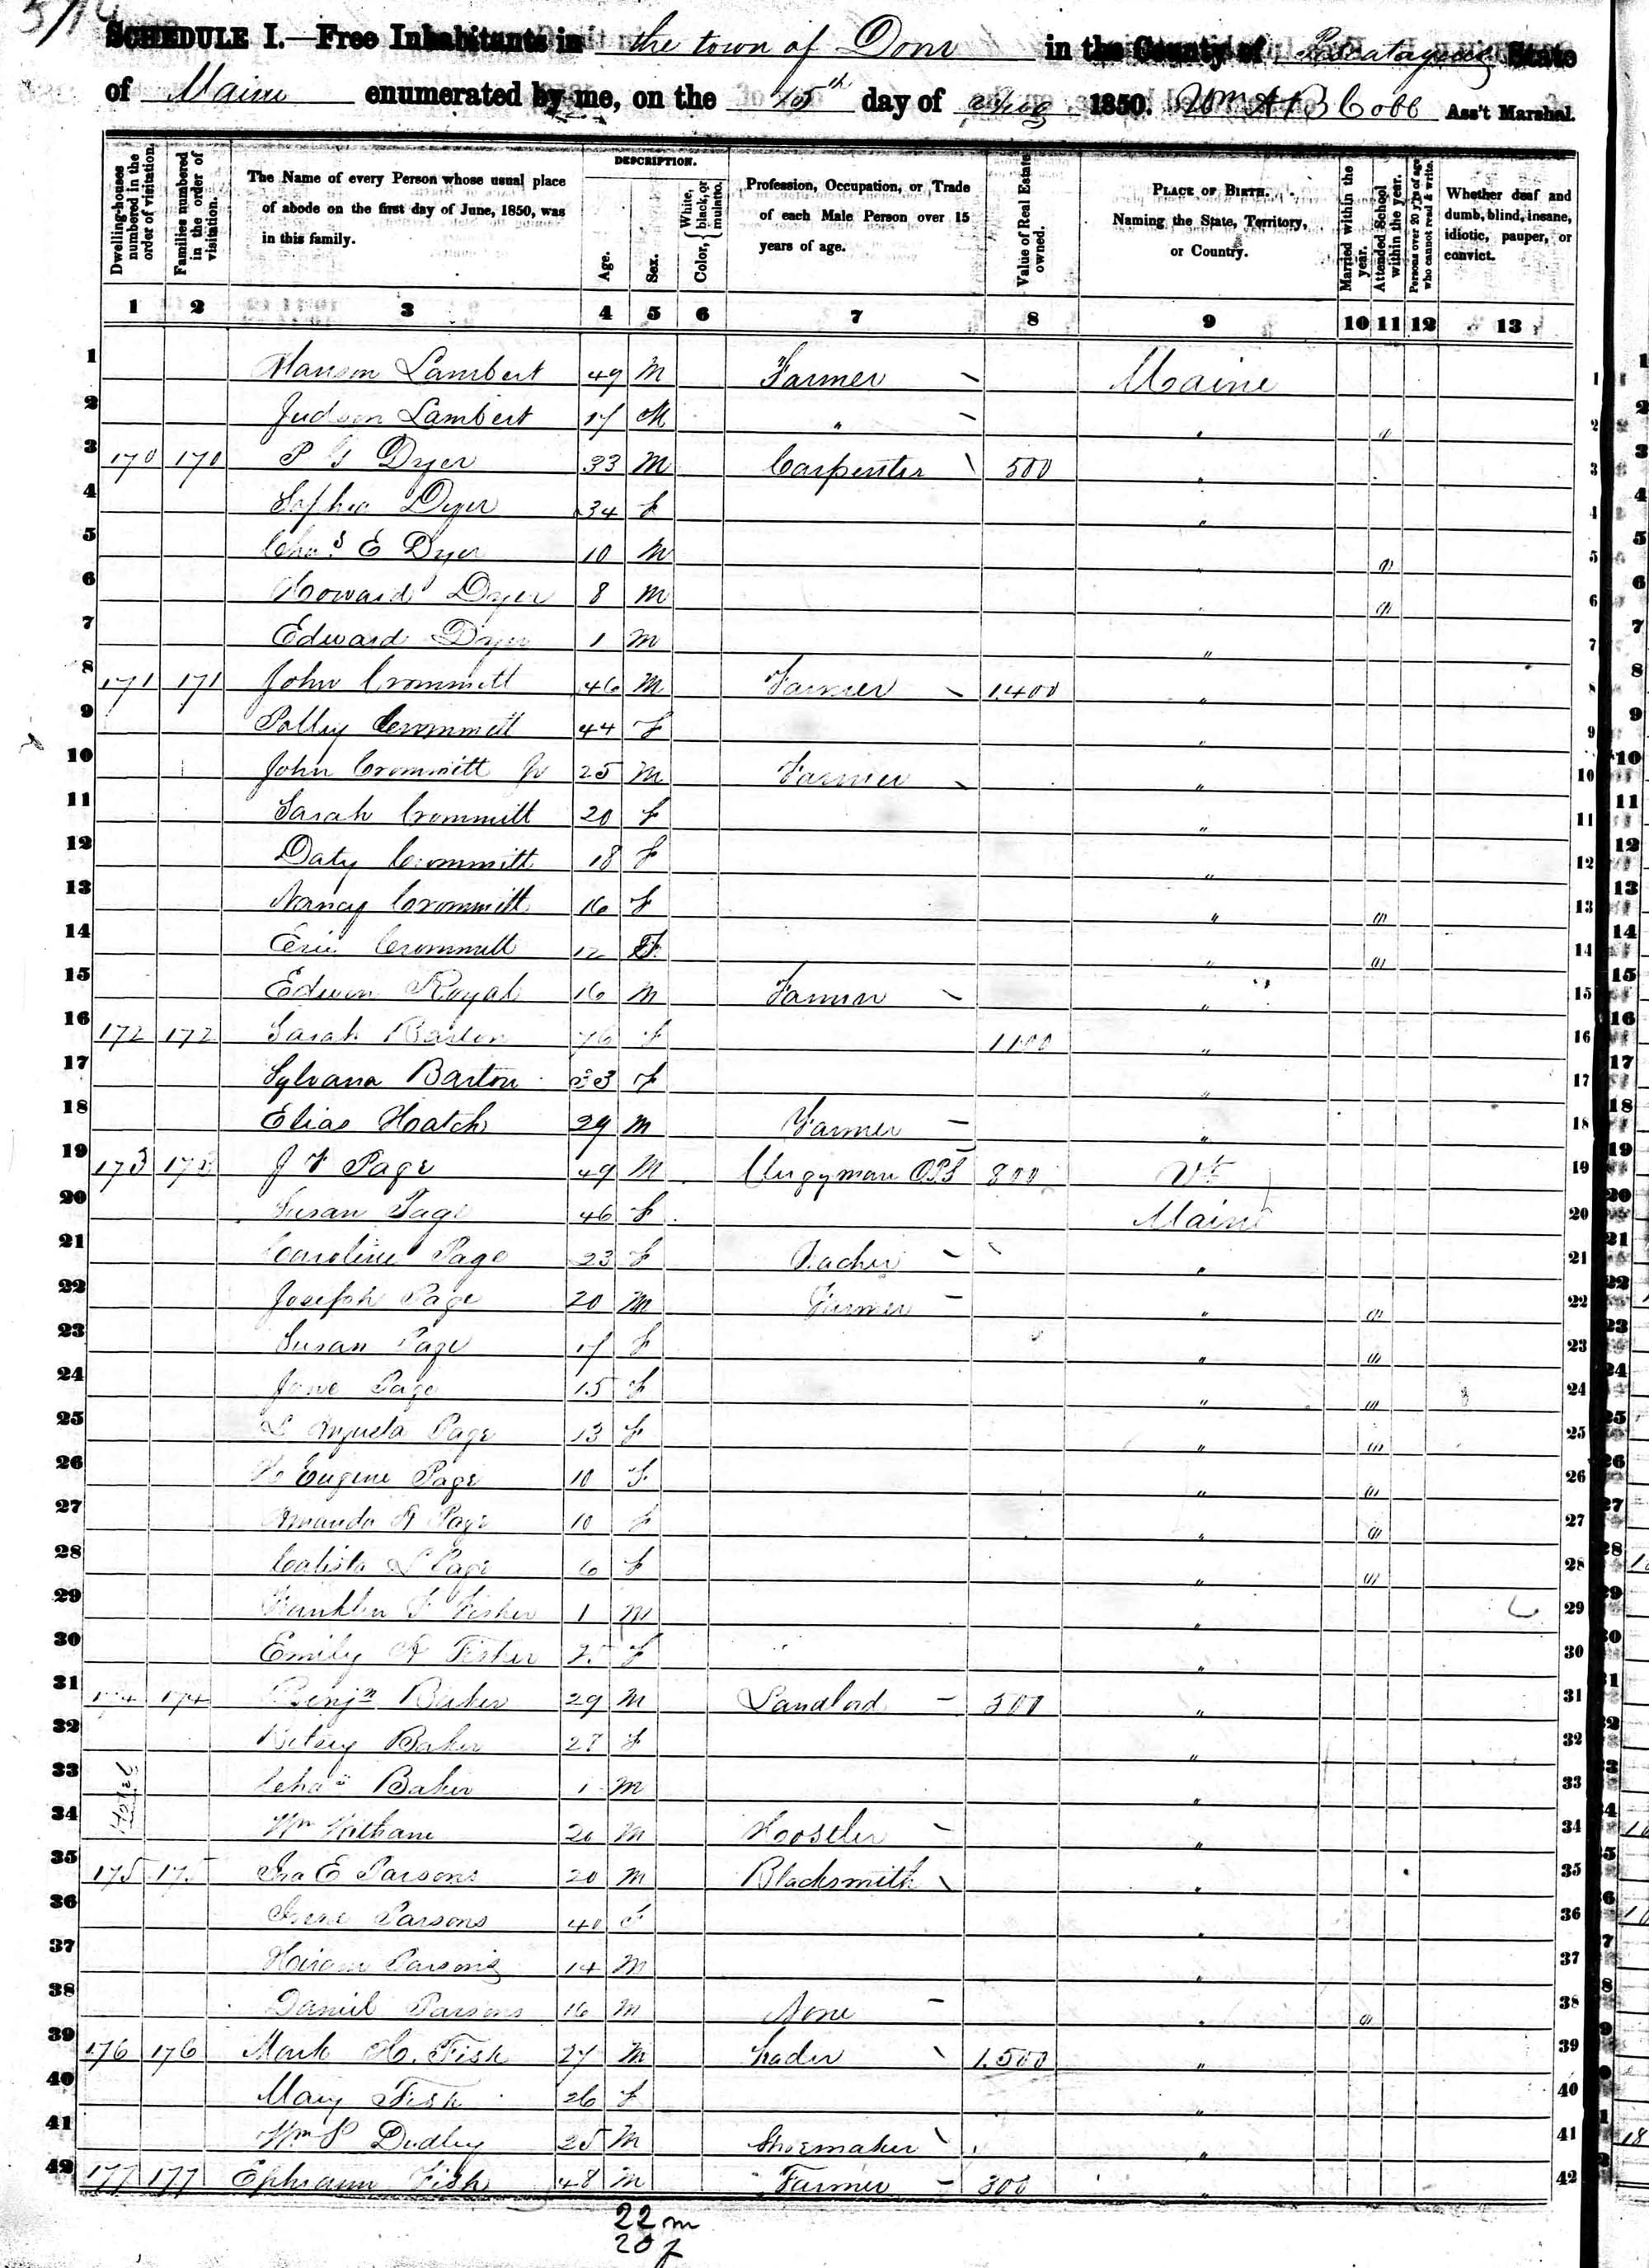 SCHEDULE I.—Free Inhabitants in the town of Dover in the County of Piscataquis State
of Maine enumerated by me, on the 15th day of Aug 1850. Wm A P B Cobb Ass't Marshal.
Dwelling-houses numbered in the order of visitation.
Families numbered in the order of visitation.
The Name of every Person whose usual place of abode on the first day of June, 1850, was in this family.
DESCRIPTION.
Age.
Sex.
Color, White, black, or mulatto.
Profession, Occupation, or Trade of each Male Person over 15 years of age.
Value of Real Estate owned.
PLACE OF BIRTH. Naming the State, Territory, or Country.
Married within the year.
Attended School within the year.
Persons over 20 y'rs of age who cannot read & write.
Whether deaf and dumb, blind, insane, idiotic, pauper, or convict.
1 2 3 4 5 6 7 8 9 10 11 12 13
1 Lambert 49 M Farmer Maine 1
2 Judson Lambert 17 M " " " 2
3 170 170 P G Dyer 33 M Carpenter 500 " 3
4 Sophia Dyer 34 F " 4
5 Chas E Dyer 10 M " " 5
6 Howard Dyer 8 M " " 6
7 Edward Dyer 1 M " 7
8 171 171 John Crommett 46 M Farmer 1400 " 8
9 Polley Crommett 44 F " 9
10 John Crommett Jr 25 M Farmer " 10
11 Sarah Crommett 20 F " 11
12 Daty Crommett 18 F " 12
13 Nancy Crommett 16 F " " 13
14 Crommett 12 F " " 14
15 Edwin Royal 16 M Farmer " 15
16 172 172 Sarah Barton 76 F 1100 " 16
17 Sylvana Barton 33 F " 17
18 Elias Hatch 29 M Farmer " 18
19 173 173 Page 49 M Clergyman 800 Vt 19
20 Susan Page 46 F Maine 20
21 Caroline Page 23 F Teacher " 21
22 Joseph Page 20 M Farmer " " 22
23 Susan Page 17 F " " 23
24 Jane Page 15 F " " 24
25 Page 13 F " " 25
26 H Eugene Page 10 F " " 26
27 Amanda Page 10 F " " 27
28 Calista L Page 6 F " " 28
29 Franklin F Fisher 1 M " 29
30 Emily A Fisher F " 30
31 174 174 Benjn Baker 29 M Landlord 500 " 31
32 Betsey Baker 27 F " 32
33 Chas Baker 1 M " 33
Hotel
34 Wm Witham 20 M Hostler " 34
35 175 175 Ira E Parsons 20 M Blacksmith " 35
36 Irene Parsons 40 F " 36
37 Hiram Parsons 14 M " 37
38 Daniel Parsons 16 M None " " 38
39 176 176 Mark H. Fish 27 M Trader 1.500 " 39
40 Mary Fish 26 F " 40
41 Wm P Dudley 25 M Shoemaker " 41
42 177 177 Ephraim Fish 48 M Farmer 300 " 42
22 m
20 f